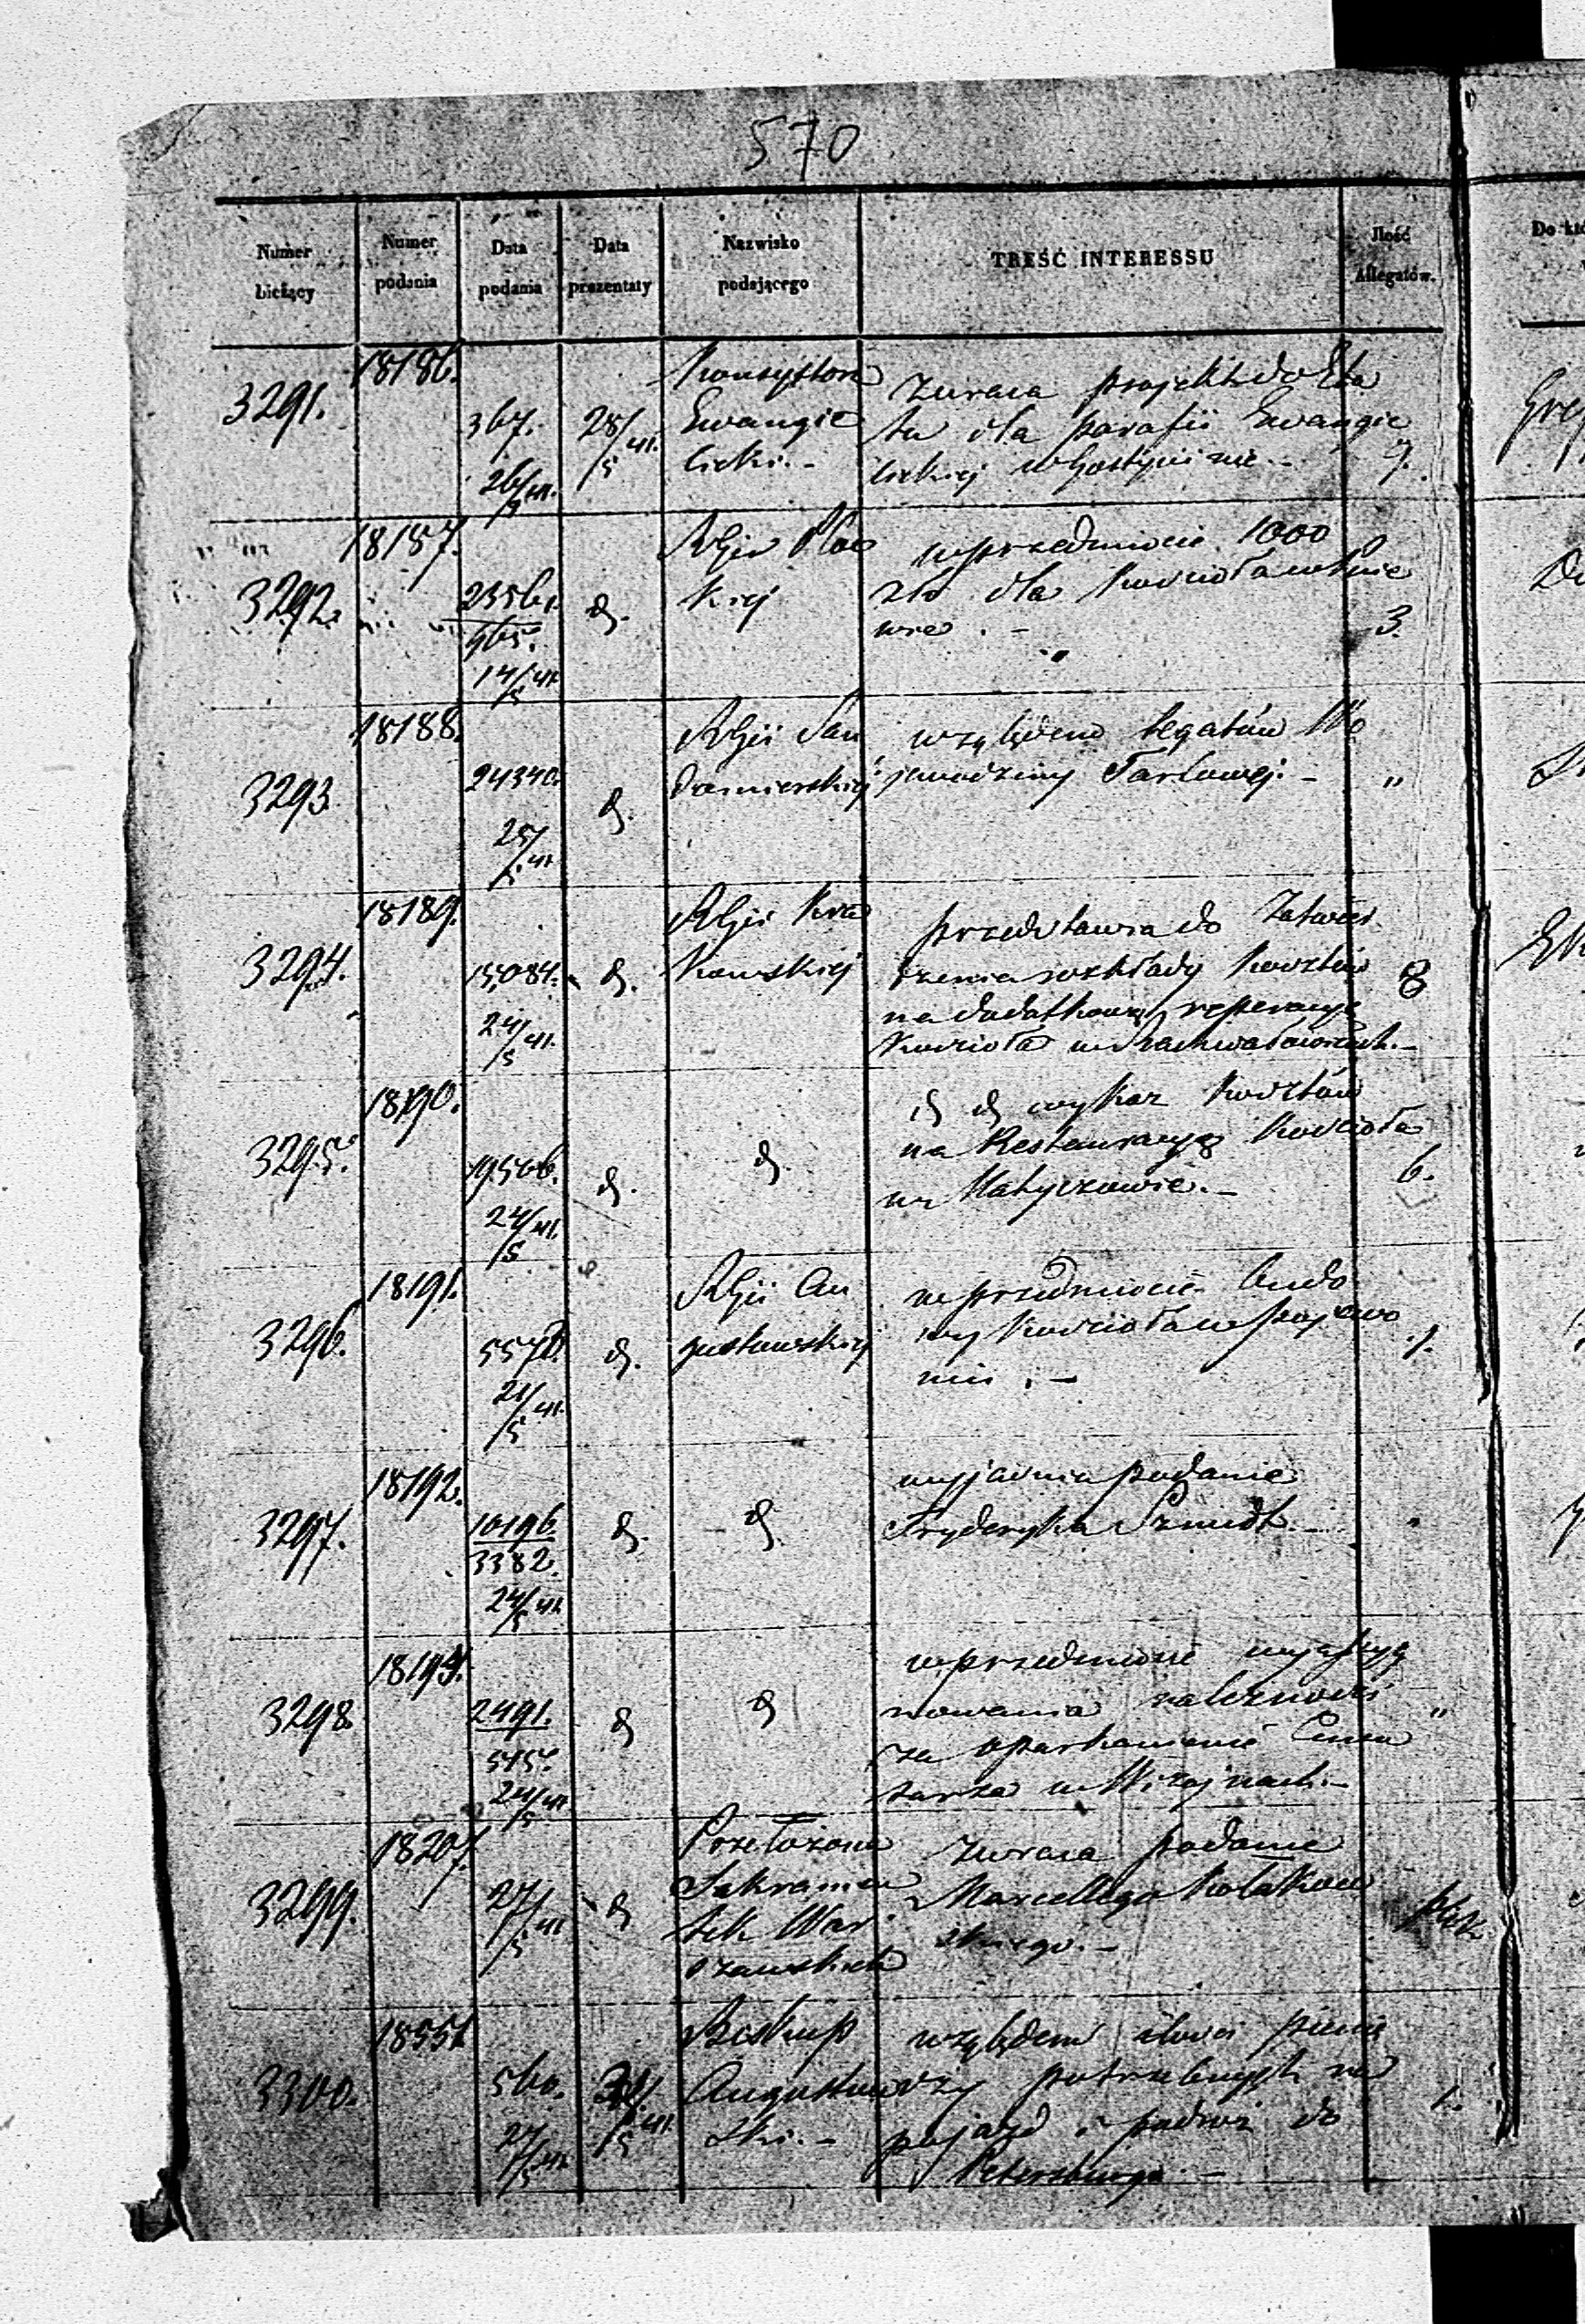 570
Numer bieżący | Numer podania | Data podania | Data prezentaty | Nazwisko podającego | TREŚĆ INTERESSU | Ilość Allegatów. | Do
3291. | 18186. | 367. 26/5 41. | 28/5 41. | Konsystorz
Ewangie
licki.- | zwraca projekt do Eta
tu dla parafii Ewangie
lickiej w Gostyninie.-
3292. | 18187. | 23561. 965. 14/5 41. | d. | RGu Płoc
kiej | w przedmiocie 1000
złp dla kościoła w
wie.- | 3.
3293. | 18188. | 24340. 25/5 41. | d. | RGu San
domierskiej | względem legatów Wo
jewodziny Tarłowej.- | "
3294. | 18189. | 15,084. 24/5 41. | d. | RGu Kra
kowskiej | przedstawia do Zatwier
dzenia rozkłady kosztów
na dodatkową reperacyę
kościoła w Rachwałowicach.- | 8
3295. | 18190. | 19566. 24/5 41. | d. | d. | d d wykaz kosztów
na Restauracyę kościoła
w .- | 6.
3296. | 18191. | 21/5 41. | d. | RGu Au
gustowskiej | w przedmiocie budo
wy kościoła w
niu.- | 1.
3297. | 18192. | 10196. 3382. 24/5 41. | d. | d. | wyjaśnia podanie
Fryderyka Szmidt.-
3298. | 2491. 515. 24/5 41. | d | d | w przedmiocie
nowania należności
za oparkanienie Cmen
tarza w Wiżajnach.- | "
3299. | 18207. | 27/5 41 | d | Przełożona
Sakramen
tek War
szawskich | zwraca podanie
Marcellego Kołakow
skiego.-
3300. | 18551 | 560. 27/5 41. | /5 41. | Biskup
Augustow
ski.- | względem ilości pienię
dzy potrzebnych na
pojazd i podróż do
Petersburga.- | 1.